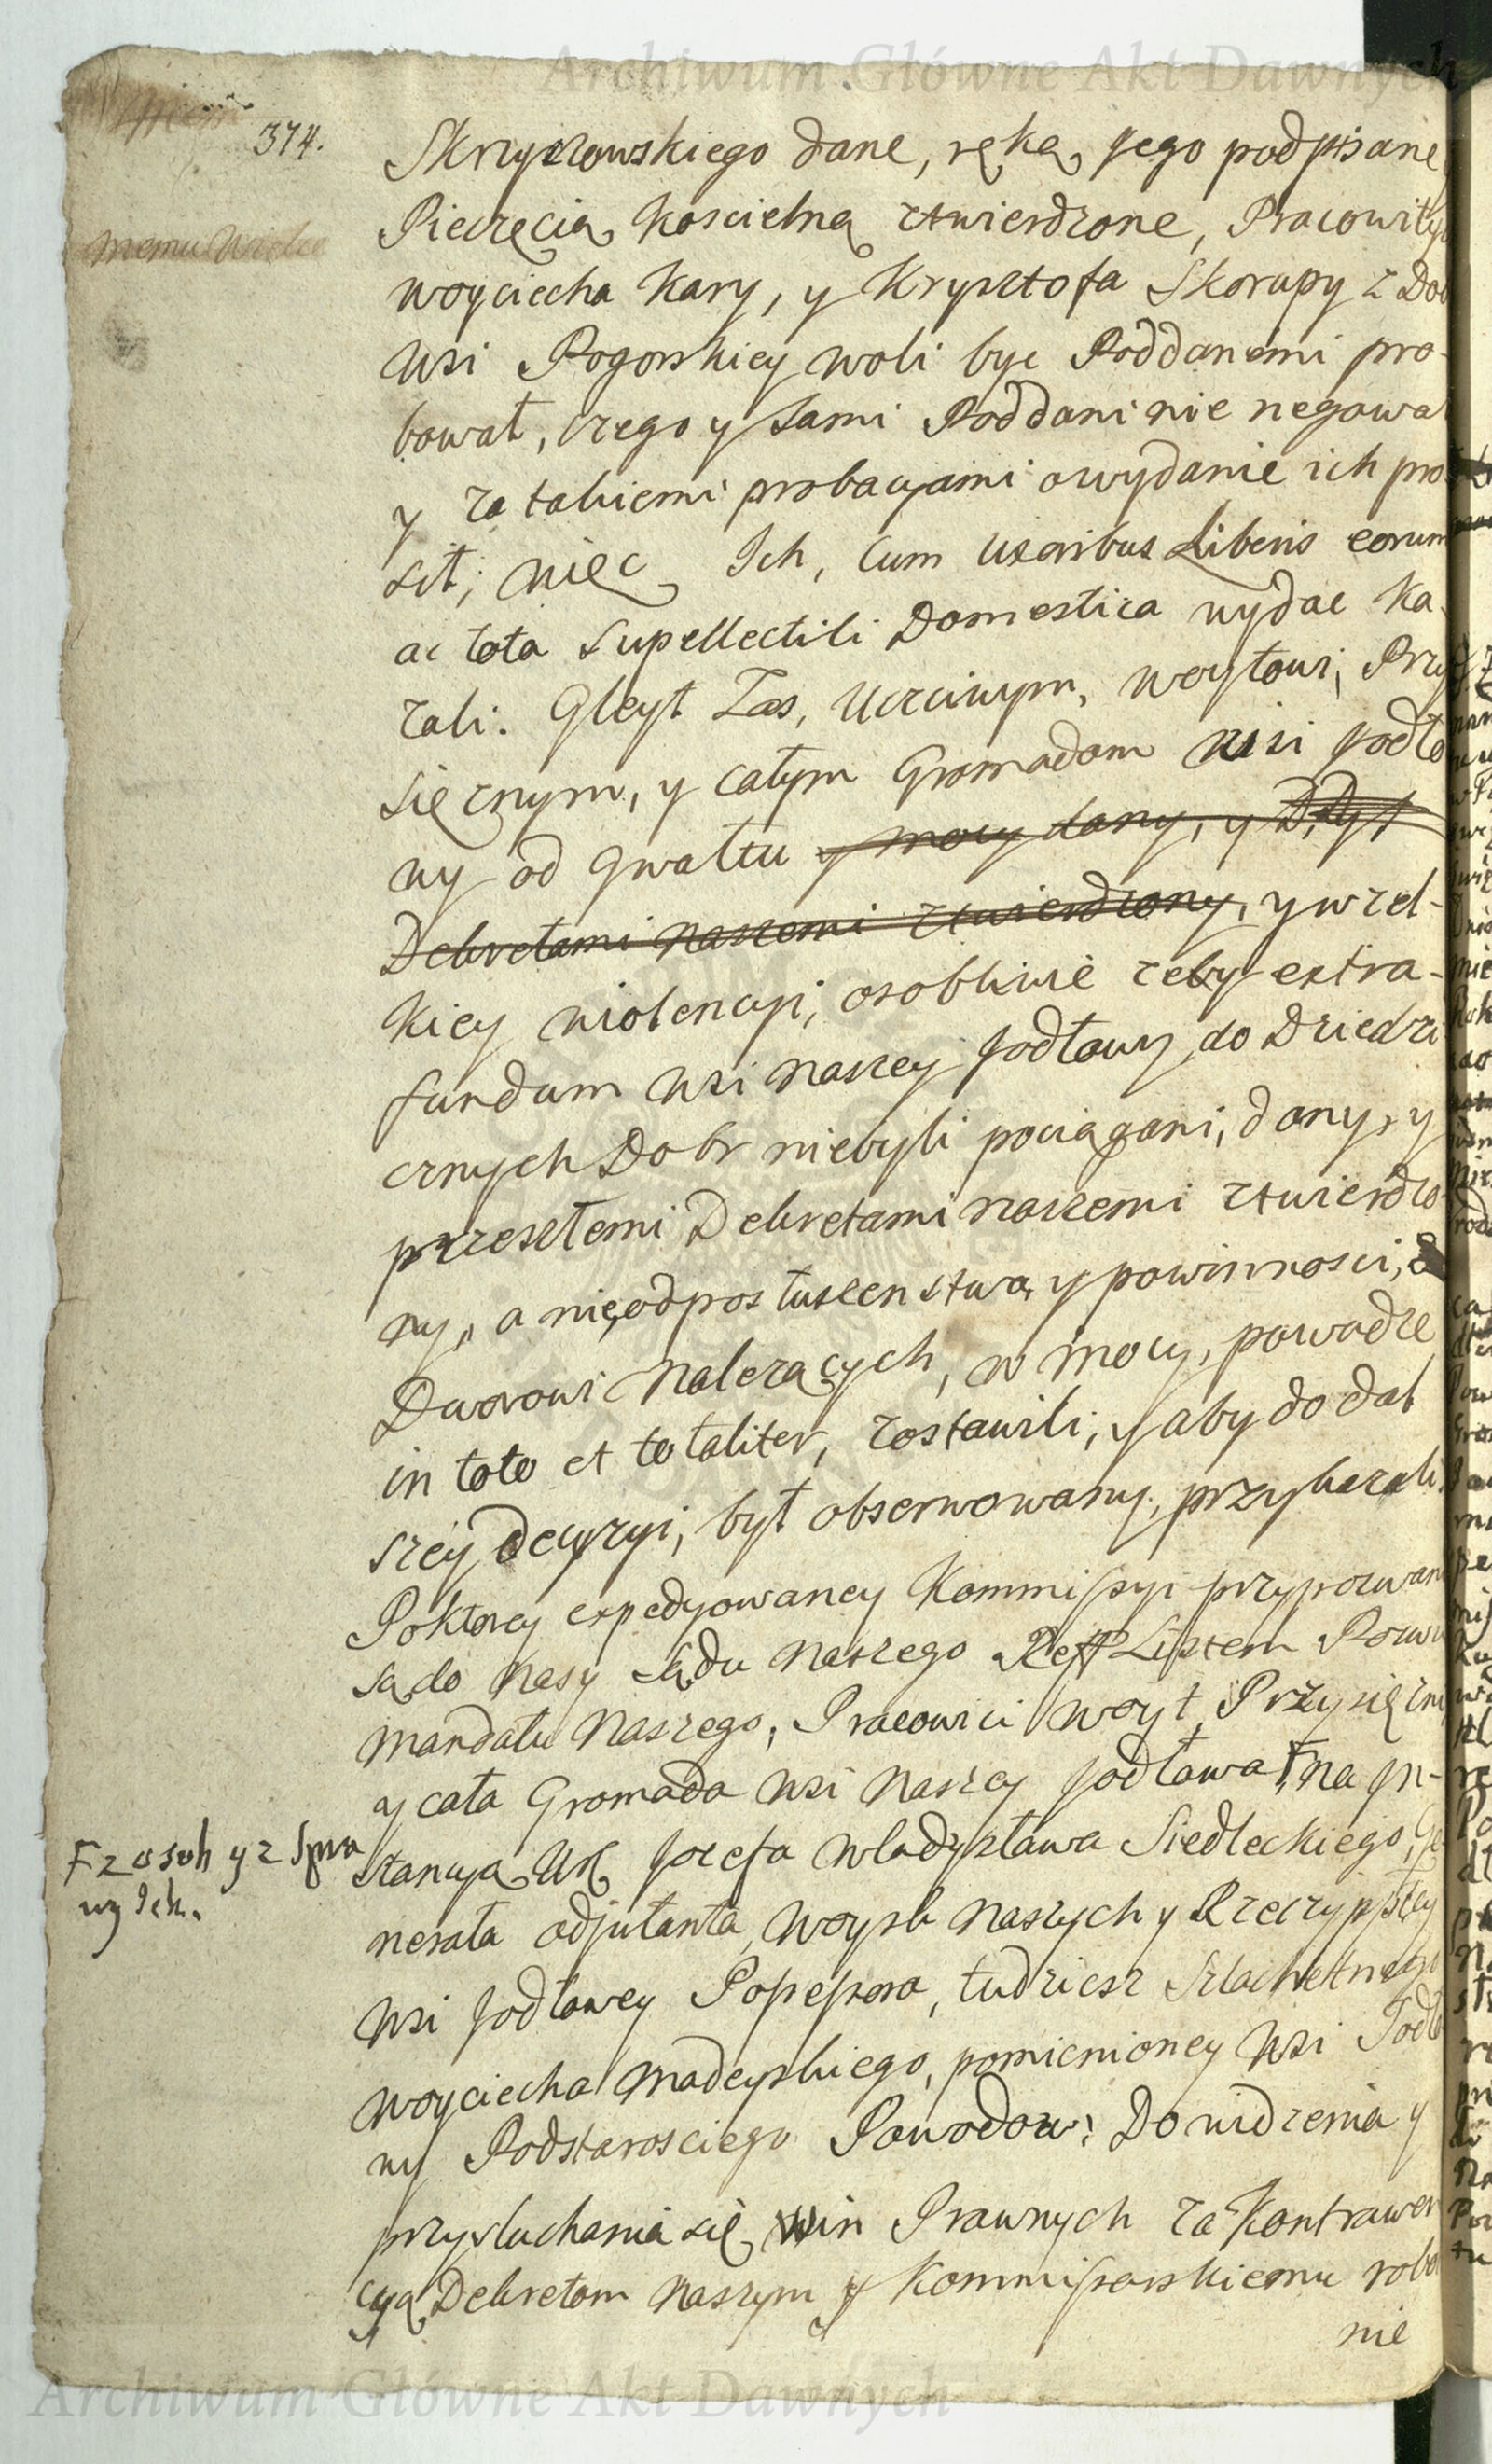 Archiwum Główne Akt Dawnych
374.
Skrzyszowskiego dane, ręką Jego podpisane
Pieczęcią Koscielną ztwierdzone, Pracowity
Woyciecha Kary, y Krysztofa Skorupy z Do
Wsi Pogorskiey Woli byc Poddanemi pro-
bował, czego y Sami Poddani nie negowa
y za takiemi probacyami o wydanie ich pro
sił; więc Ich, Cum Uxoribus Liberis eorum
ac tota Supellectili Domestica wydac Ka-
zali. Gleyt Zas, Uczciwym, Woytowi, Przy
sięznym, y całym Gromadom Wsi Jodło
wy od gwałtu y mocy dany, y
Dekretami Naszemi ztwierdzony, y wszel-
kiey wiolencyi, osobliwie zeby extra-
fundum Wsi Naszey Jodłowy do Dziedzi
cznych Dobr niebyli pociągani, dany, y
przeszłemi Dekretami Naszemi ztwierdzo
ny, a nie od posłuszenstwa y powinnosci,
Dworowi Nalezących, w mocy, powadze
in toto et totaliter, zostawili, y aby do dal
szey decyzyi, był obserwowany, przykazali
Po ktorey expedyowaney Kommissyi przypozwani
są do Nas y Sądu Naszego Reff Listem Pozwu
Mandatu Naszego, Pracowici Woyt, Przysięzni
y cała Gromada Wsi Naszey Jodłowa F na In-
F z osob y z Spra
wy Ich.
stancyą Ur Jozefa Władysława Siedleckiego, Ge
nerała adjutanta Woysk Naszych y Rzeczypptey
Wsi Jodłowey Possessora, tudziesz Szlachetnego
Woyciecha Madeyskiego, pomienioney Wsi Jodło
wy Podstarosciego Powodow: Do widzenia y
przysłuchania się Win Prawnych za Kontrawen
cyą Dekretom Naszym y Kommissarskiemu robo
nie
Archiwum Główne Akt Dawnych